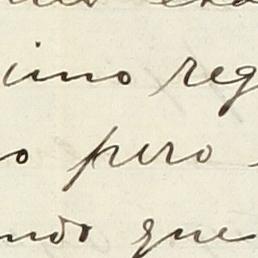 imo reg
o pero
ndo que